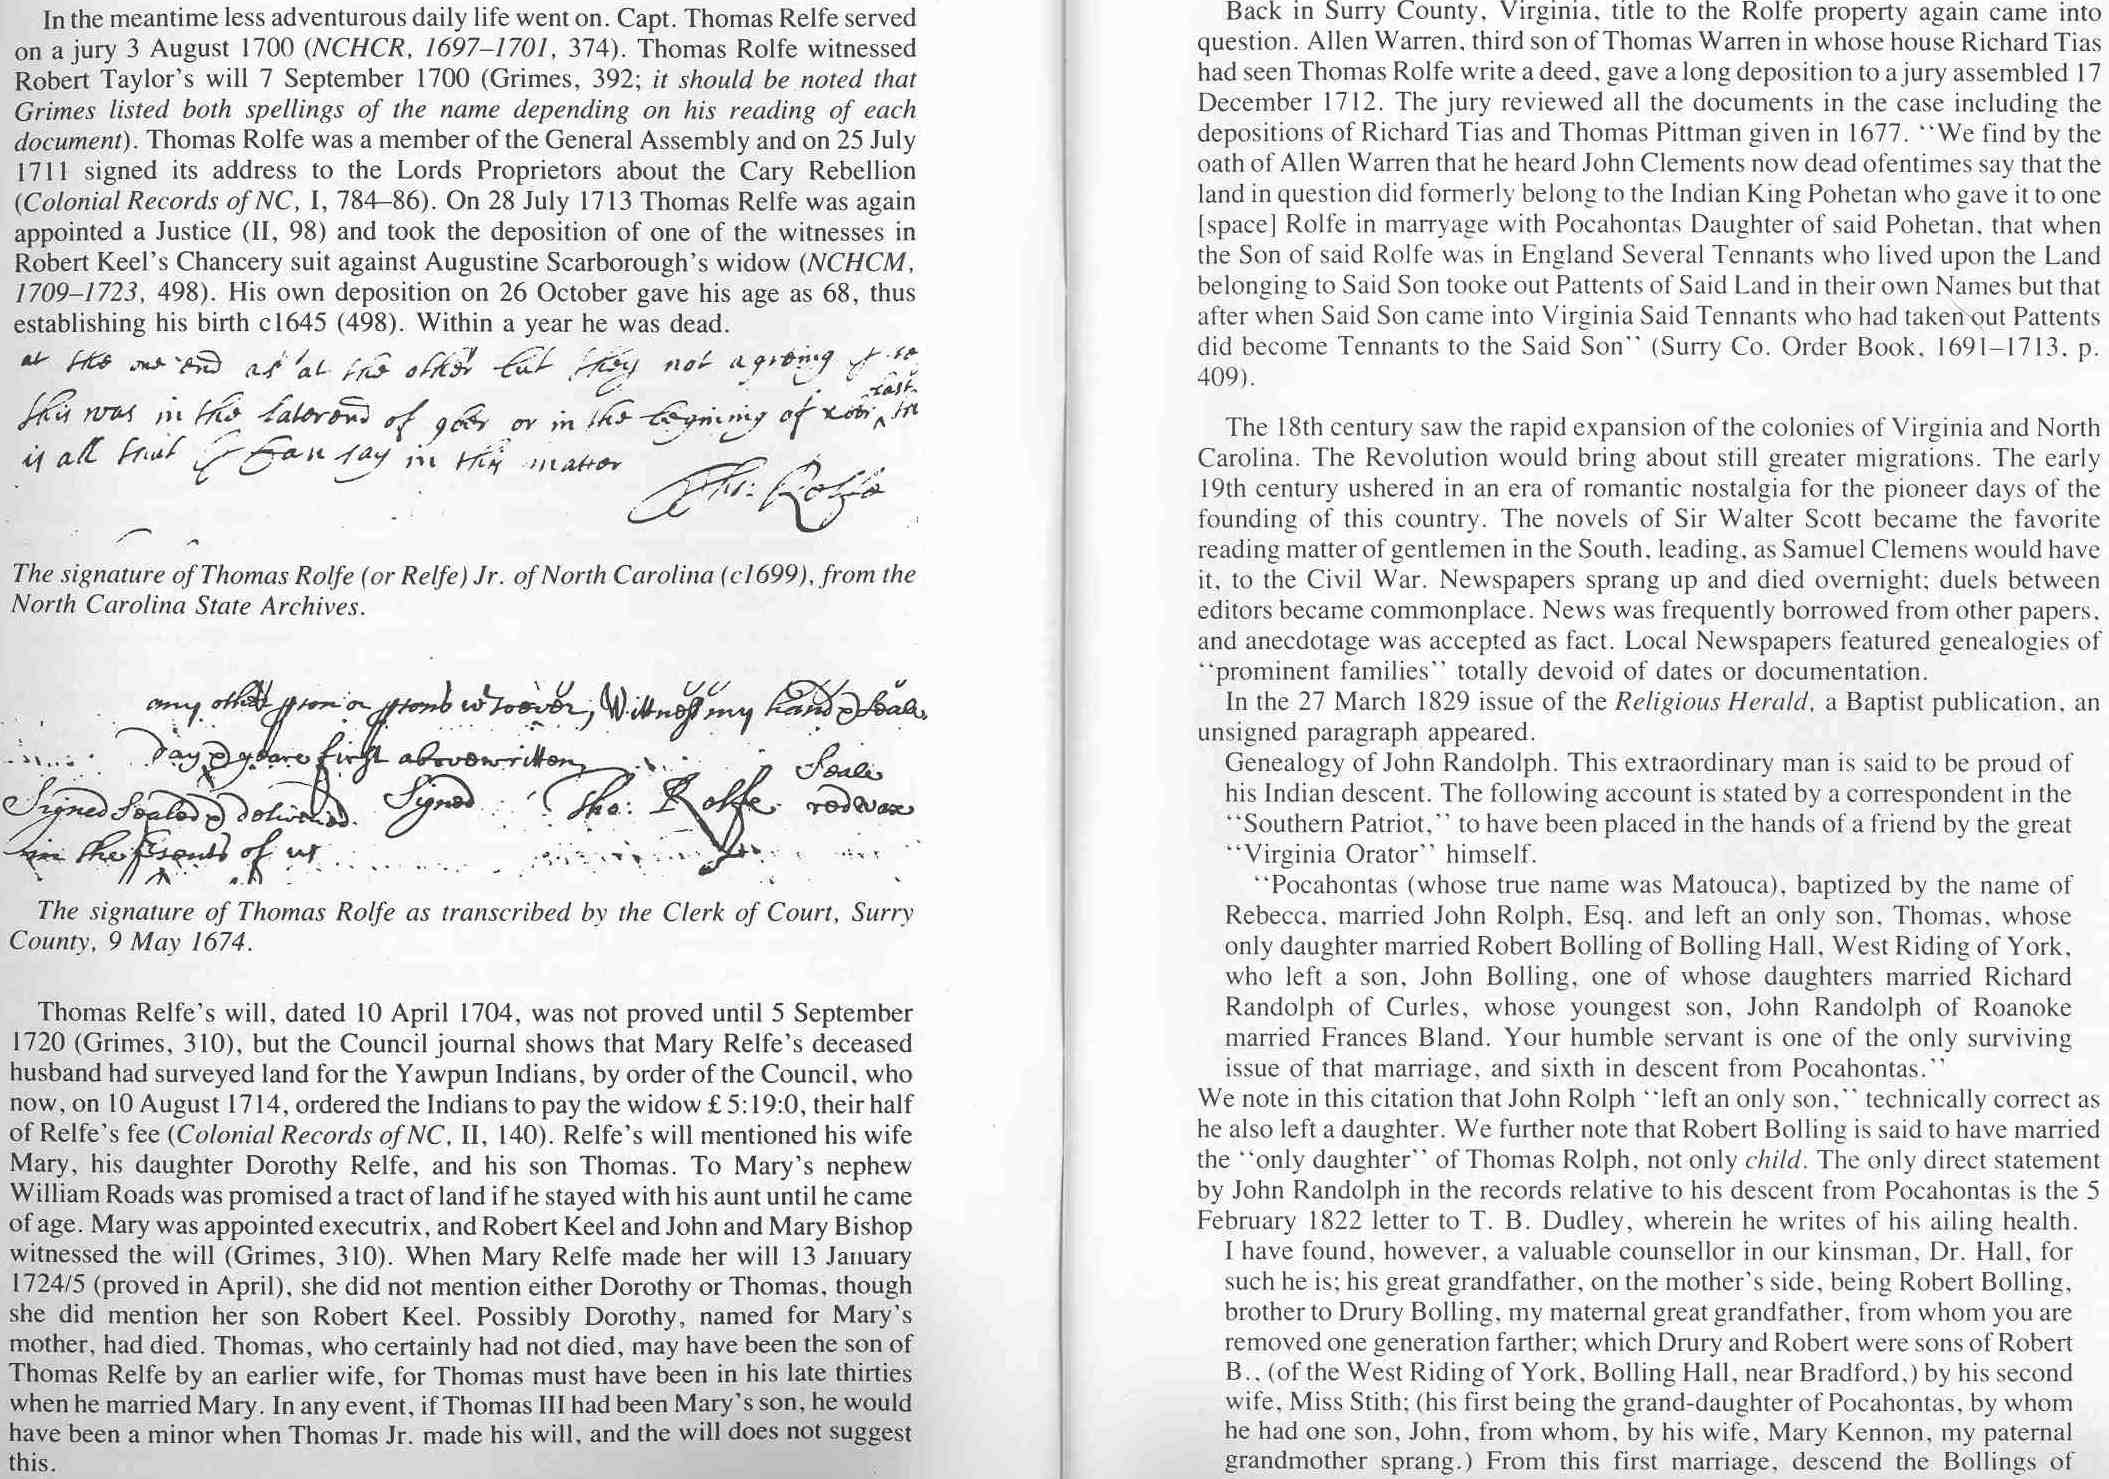 In the meantime less adventurous daily life went on. Capt. Thomas Relfe served
on a jury 3 August 1700 (NCHCR, 1697–1701, 374). Thomas Rolfe witnessed
Robert Taylor's will 7 September 1700 (Grimes, 392; it should be noted that
Grimes listed both spellings of the name depending on his reading of each
document). Thomas Rolfe was a member of the General Assembly and on 25 July
1711 signed its address to the Lords Proprietors about the Cary Rebellion
(Colonial Records of NC, I, 784–86). On 28 July 1713 Thomas Relfe was again
appointed a Justice (II, 98) and took the deposition of one of the witnesses in
Robert Keel's Chancery suit against Augustine Scarborough's widow (NCHCM,
1709–1723, 498). His own deposition on 26 October gave his age as 68, thus
establishing his birth c1645 (498). Within a year he was dead.
at the one end as at the other but they not agreeing
this was in the later end of or in the begining of last
is all that I can say in this matter
Tho: Rolfe
The signature of Thomas Rolfe (or Relfe) Jr. of North Carolina (c1699), from the
North Carolina State Archives.
any other or Wittness my hand & Seale
day & yeare first abovewritten
Signed Sealed & delivered Signed Tho: Rolfe Seale
red wax
in the of us
The signature of Thomas Rolfe as transcribed by the Clerk of Court, Surry
County, 9 May 1674.
Thomas Relfe's will, dated 10 April 1704, was not proved until 5 September
1720 (Grimes, 310), but the Council journal shows that Mary Relfe's deceased
husband had surveyed land for the Yawpun Indians, by order of the Council, who
now, on 10 August 1714, ordered the Indians to pay the widow £ 5:19:0, their half
of Relfe's fee (Colonial Records of NC, II, 140). Relfe's will mentioned his wife
Mary, his daughter Dorothy Relfe, and his son Thomas. To Mary's nephew
William Roads was promised a tract of land if he stayed with his aunt until he came
of age. Mary was appointed executrix, and Robert Keel and John and Mary Bishop
witnessed the will (Grimes, 310). When Mary Relfe made her will 13 January
1724/5 (proved in April), she did not mention either Dorothy or Thomas, though
she did mention her son Robert Keel. Possibly Dorothy, named for Mary's
mother, had died. Thomas, who certainly had not died, may have been the son of
Thomas Relfe by an earlier wife, for Thomas must have been in his late thirties
when he married Mary. In any event, if Thomas III had been Mary's son, he would
have been a minor when Thomas Jr. made his will, and the will does not suggest
this.
Back in Surry County, Virginia, title to the Rolfe property again came into
question. Allen Warren, third son of Thomas Warren in whose house Richard Tias
had seen Thomas Rolfe write a deed, gave a long deposition to a jury assembled 17
December 1712. The jury reviewed all the documents in the case including the
depositions of Richard Tias and Thomas Pittman given in 1677. "We find by the
oath of Allen Warren that he heard John Clements now dead ofentimes say that the
land in question did formerly belong to the Indian King Pohetan who gave it to one
[space] Rolfe in marryage with Pocahontas Daughter of said Pohetan, that when
the Son of said Rolfe was in England Several Tennants who lived upon the Land
belonging to Said Son tooke out Pattents of Said Land in their own Names but that
after when Said Son came into Virginia Said Tennants who had taken out Pattents
did become Tennants to the Said Son" (Surry Co. Order Book, 1691–1713, p.
409).
The 18th century saw the rapid expansion of the colonies of Virginia and North
Carolina. The Revolution would bring about still greater migrations. The early
19th century ushered in an era of romantic nostalgia for the pioneer days of the
founding of this country. The novels of Sir Walter Scott became the favorite
reading matter of gentlemen in the South, leading, as Samuel Clemens would have
it, to the Civil War. Newspapers sprang up and died overnight; duels between
editors became commonplace. News was frequently borrowed from other papers,
and anecdotage was accepted as fact. Local Newspapers featured genealogies of
"prominent families" totally devoid of dates or documentation.
In the 27 March 1829 issue of the Religious Herald, a Baptist publication, an
unsigned paragraph appeared.
Genealogy of John Randolph. This extraordinary man is said to be proud of
his Indian descent. The following account is stated by a correspondent in the
"Southern Patriot," to have been placed in the hands of a friend by the great
"Virginia Orator" himself.
"Pocahontas (whose true name was Matouca), baptized by the name of
Rebecca, married John Rolph, Esq. and left an only son, Thomas, whose
only daughter married Robert Bolling of Bolling Hall, West Riding of York,
who left a son, John Bolling, one of whose daughters married Richard
Randolph of Curles, whose youngest son, John Randolph of Roanoke
married Frances Bland. Your humble servant is one of the only surviving
issue of that marriage, and sixth in descent from Pocahontas."
We note in this citation that John Rolph "left an only son," technically correct as
he also left a daughter. We further note that Robert Bolling is said to have married
the "only daughter" of Thomas Rolph, not only child. The only direct statement
by John Randolph in the records relative to his descent from Pocahontas is the 5
February 1822 letter to T. B. Dudley, wherein he writes of his ailing health.
I have found, however, a valuable counsellor in our kinsman, Dr. Hall, for
such he is; his great grandfather, on the mother's side, being Robert Bolling,
brother to Drury Bolling, my maternal great grandfather, from whom you are
removed one generation farther; which Drury and Robert were sons of Robert
B., (of the West Riding of York, Bolling Hall, near Bradford,) by his second
wife, Miss Stith; (his first being the grand-daughter of Pocahontas, by whom
he had one son, John, from whom, by his wife, Mary Kennon, my paternal
grandmother sprang.) From this first marriage, descend the Bollings of